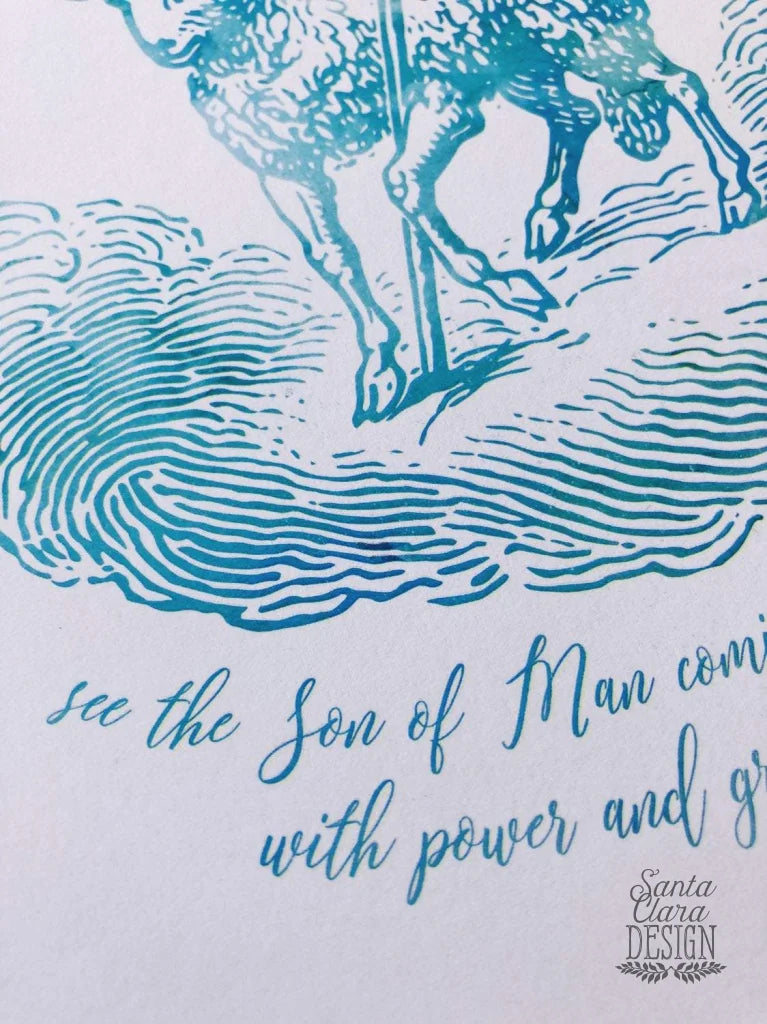 see the Son of Man comi
with power and gr
Santa
Clara
DESIGN